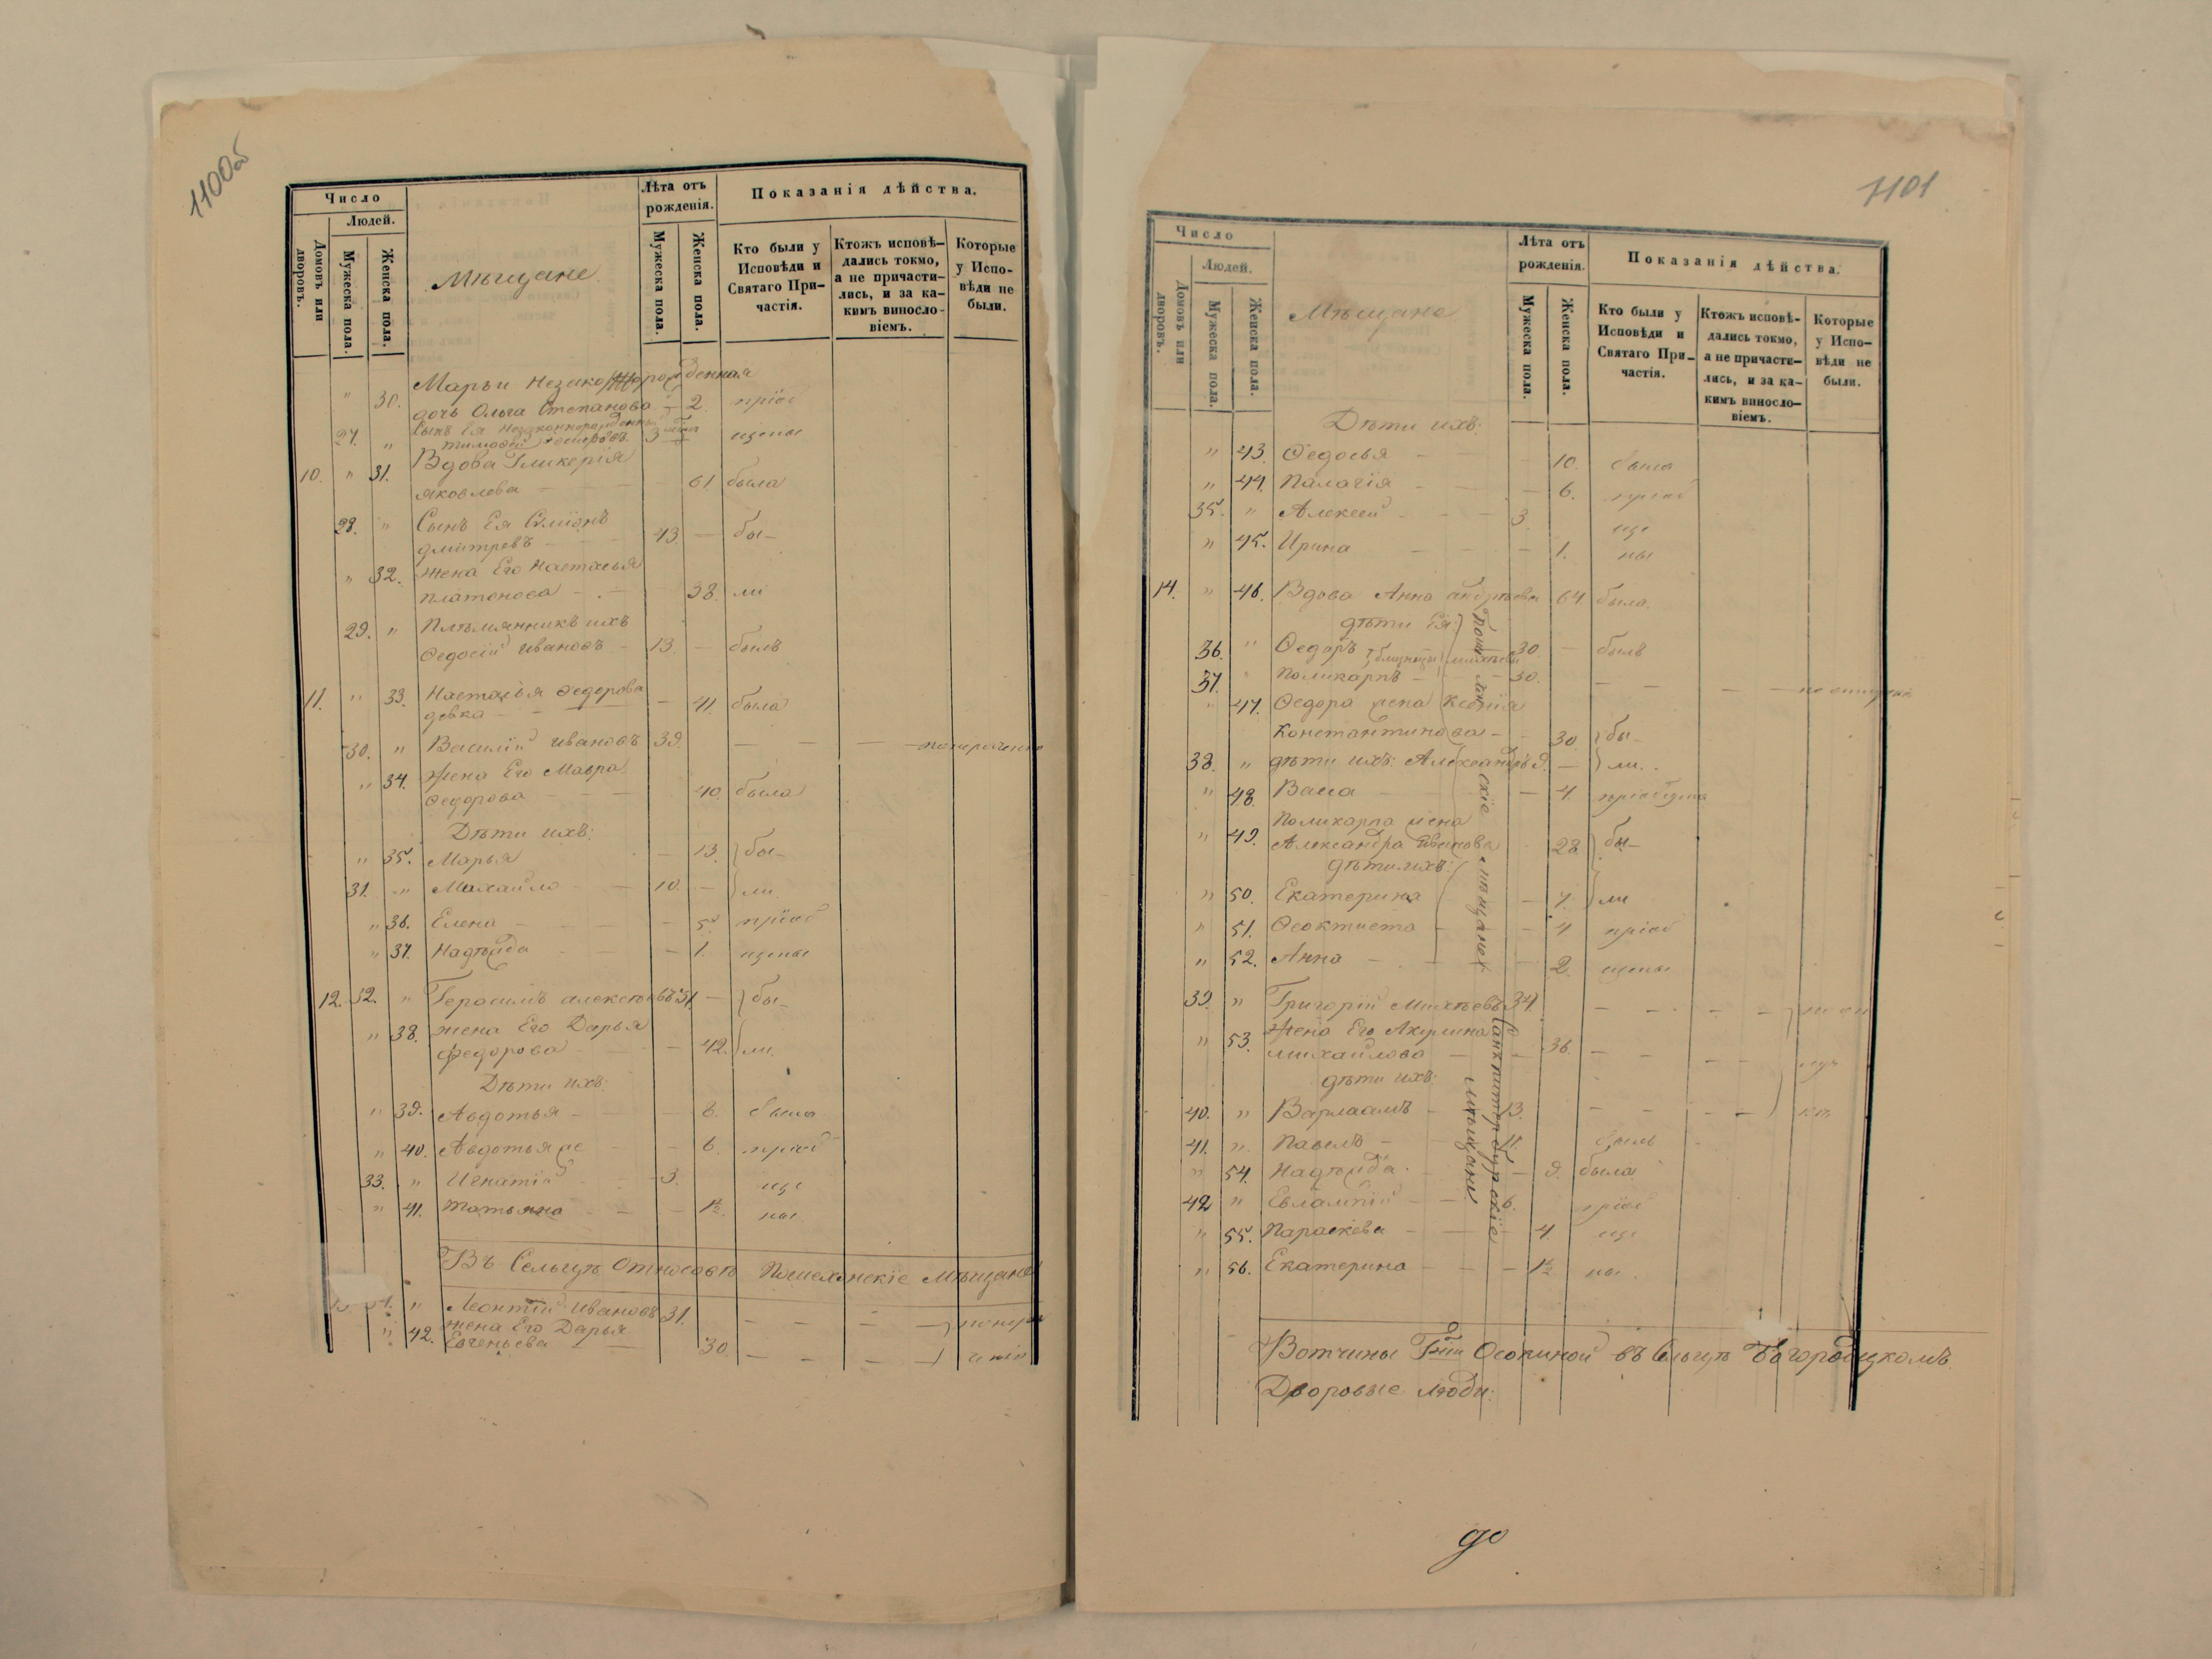 1100об
Число
Людей.
Домовъ или дворовъ.
Мужеска пола.
Женска пола.
Мѣщане
Лѣта отъ рожденія.
Мужеска пола.
Женска пола.
Показанія дѣйства.
Кто были у Исповѣди и Святаго Причастія.
Ктожъ исповѣдались токмо, а не причастились, и за какимъ винословіемъ.
Которые у Исповѣди не были.
Марьи незаконорожденная
" 30. дочь Ольга Степанова - 2. пріоб
27. " Сынъ Ея незаконнорожденный
Тимофей 3 щены
10. " 31. Вдова Гликерія
Яковлева - 61 была
28. " Сынъ Ея Симіонъ
Дмитревъ - 43. - бы-
" 32. жена Его Настасья
Платонова - 38. ли
29. " Племянникъ ихъ
Ѳедосій Ивановъ - 13. - былъ
11. " 33. Настасья Ѳедорова
девка - 41. была
30. " Василій Ивановъ 39. - - -
" 34. Жена Его Мавра
Ѳедорова - 40. была
Дѣти ихъ:
" 35. Марья - 13. бы-
31. " Михайло - 10. - ли.
" 36. Елена - 5. пріоб
" 37. Надѣжда - 1. щены
12. 32. " Герасимъ Алексѣевъ 51. - бы-
" 38. жена Его Дарья
Федорова - 42. ли.
Дѣти ихъ:
" 39. Авдотья - 8. была
" 40. Авдотья же - 6. пріоб
33. " Игнатій - 3. ще
" 41. Татьяна - 1½. ны
Въ Сельцѣ Пошехонскіе Мѣщане
" Леонтій Ивановъ 31. - - - -
" 42. жена Его Дарья
Евгеньева - 30. - - -
1101
Число
Людей.
Домовъ или дворовъ.
Мужеска пола.
Женска пола.
Мѣщане
Лѣта отъ рожденія.
Мужеска пола.
Женска пола.
Показанія дѣйства.
Кто были у Исповѣди и Святаго Причастія.
Ктожъ исповѣдались токмо, а не причастились, и за какимъ винословіемъ.
Которые у Исповѣди не были.
Дѣти ихъ:
" 43. Ѳедосья - 10. была
" 44. Палагія - 6. пріоб
35. " Алексей - 3. ще
" 45. Ирина - 1. ны
14. " 46. Вдова Анна Андрѣева 64 была.
дѣти Ея:
36. " Ѳедоръ близнецы Михѣевы 30 - былъ
37. " Поликарпъ - 30. - - -
" 47. Ѳедора жена Ксенія
Константинова - 30. бы-
38. " дѣти ихъ: Александръ 9. - ли.
" 48. Васса - 4. пріобщена
" 49. Поликарпа жена
Александра 28. бы-
дѣти ихъ:
" 50. Екатерина - 7. ли
" 51. Ѳеоктиста - 4 пріоб
" 52. Анна - 2. щены
39. " Григорій Михѣевъ 34. - - -
" 53. Жена Его Акулина
Михайлова - 36. - - -
дѣти ихъ:
40. " Варлаамъ - 13. - - -
41. " Павелъ - 11. былъ
" 54. Надѣжда - 9. была
42 " Евлампій - 6. пріоб
" 55. Параскева - 4 ще
" 56. Екатерина - 1½ ны
скіе мѣщане
Санктпитербургскіе
Мѣщане
Вотчины Гжи Осокиной въ Сельцѣ Богородицкомъ
Дворовые люди: